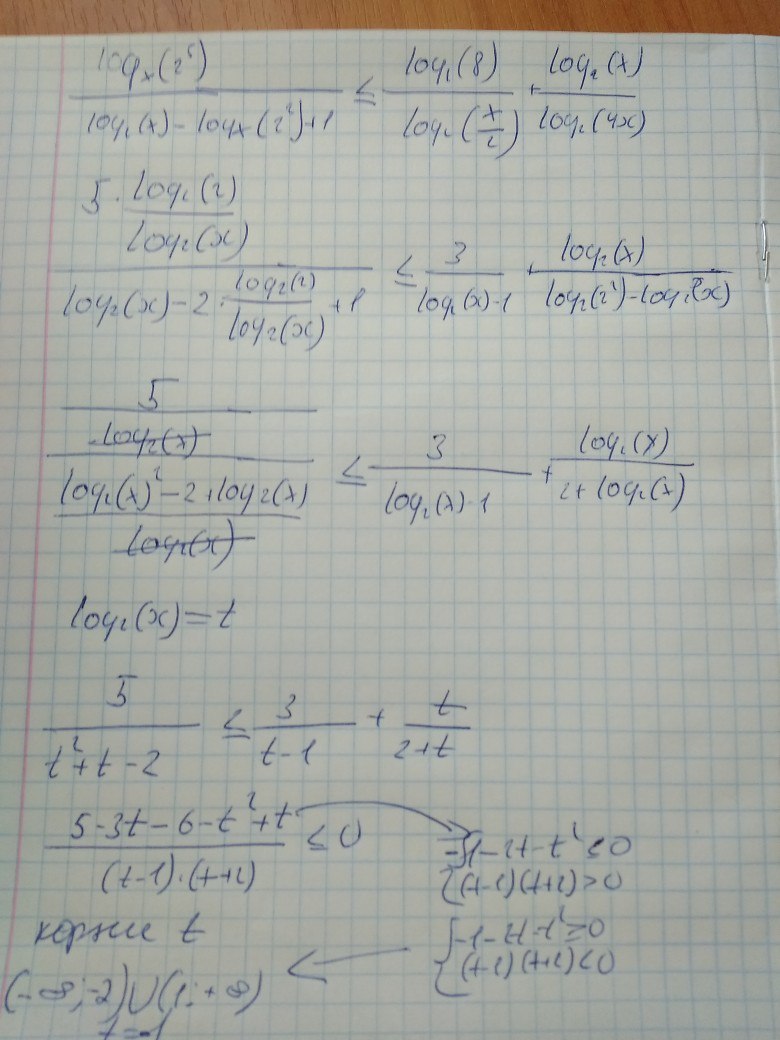 log_x(2^5) / (log_2(x) - log_x(2^2) + 1) ≤ log_2(8) / log_2(x/2) + log_2(x) / log_2(4x)
5 · log_2(2)/log_2(x) / (log_2(x) - 2 · log_2(2)/log_2(x) + 1) ≤ 3 / (log_2(x) - 1) + log_2(x) / (log_2(2^2) - log_2(x))
5 / log_2(x) / ((log_2(x)^2 - 2 + log_2(x)) / log_2(x)) ≤ 3 / (log_2(x) - 1) + log_2(x) / (2 + log_2(x))
log_2(x) = t
5 / (t^2 + t - 2) ≤ 3 / (t - 1) + t / (2 + t)
(5 - 3t - 6 - t^2 + t) / ((t-1)·(t+2)) ≤ 0
{ -1 - 2t - t^2 ≤ 0
(t-1)(t+2) > 0
{ -1 - 2t - t^2 ≥ 0
(t-1)(t+2) < 0
корни t
(-∞; -2) ∪ (1; +∞)
t = -1